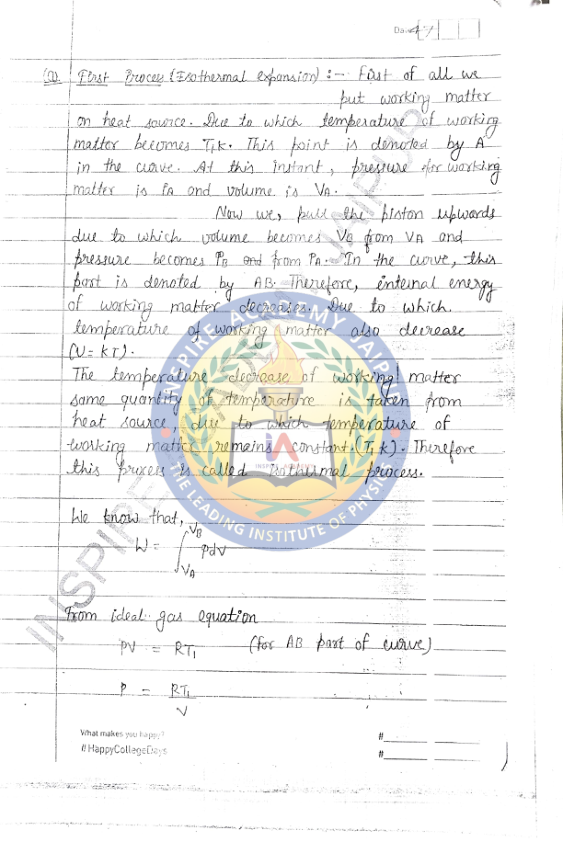 Date 47
(a). First Process (Isothermal expansion) :- First of all we
put working matter
on heat source. Due to which temperature of working
matter becomes T₁k. This point is denoted by A
in the curve. At this instant, pressure of working
matter is PA and volume is VA.
Now we, pull the piston upwards
due to which volume becomes VB from VA and
pressure becomes PB from PA. In the curve, this
part is denoted by AB. Therefore, internal energy
of working matter decreases. Due to which
temperature of working matter also decrease
(U = KT).
The temperature decrease of working matter
same quantity of temperature is taken from
heat source due to which temperature of
working matter remains constant. (T₁k). Therefore
this process is called Isothermal process.
We know that,
W = ∫ VA VB PdV
From ideal gas equation
PV = RT₁ (for AB part of curve)
P = RT₁
V
What makes you happy?
#HappyCollegeDays
#
#
INSPIRE ACADEMY JAIPUR
THE LEADING INSTITUTE OF PHYSICS
iA
INSPIRE ACADEMY JAIPUR